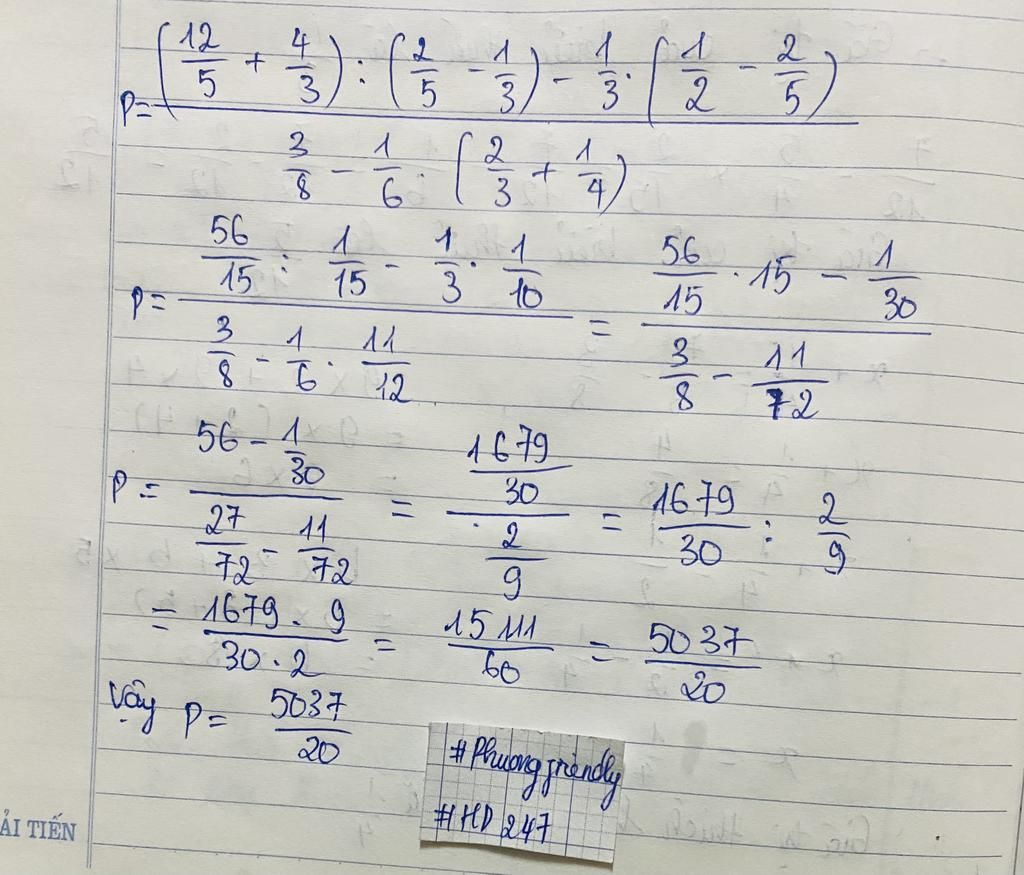 P = ((12/5 + 4/3) : (2/5 - 1/3) - 1/3 . (1/2 - 2/5)) / (3/8 - 1/6 . (2/3 + 1/4))
P = (56/15 : 1/15 - 1/3 . 1/10) / (3/8 - 1/6 . 11/12) = (56/15 . 15 - 1/30) / (3/8 - 11/72)
P = (56 - 1/30) / (27/72 - 11/72) = (1679/30) / (2/9) = 1679/30 : 2/9
= (1679 . 9) / (30 . 2) = 15111/60 = 5037/20
Vậy P = 5037/20
#Phuongfriendly
#HD247
ẢI TIẾN